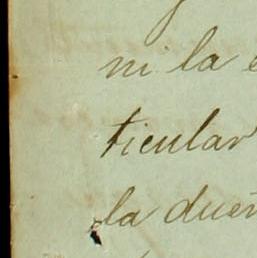 ni la
ticular
la dueñ